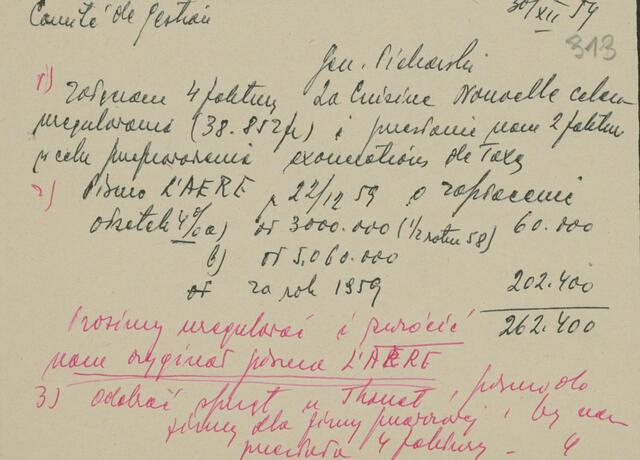 Comité de Gestion 30/XII 59
313
Gen. Piekarski
1) załączam 4 faktury La Cuisine Nouvelle celem
uregulowania (38.852 fr) i przesłanie nam 2 faktur
w celu przeprowadzenia exonerations de Taxe
2) Pismo L'AERE z 22/12 59 o zapłacenie
odsetek 4% a) od 3000.000 (1/2 roku 58) 60.000
b) od 5,060.000
od za rok 1959 202.400
262.400
Prosimy uregulować i zwrócić
nam oryginał pisma L'AERE
3) Odebrać sprzęt u Thonet, pismo do
firmy dla firmy i by nam
przesłała 4 faktury –